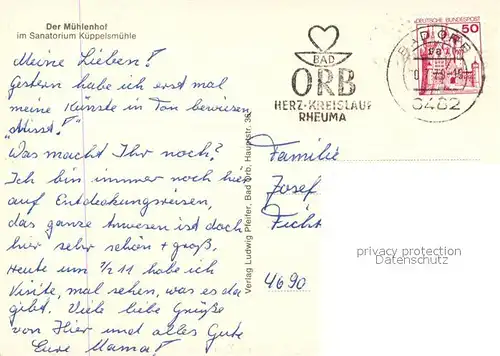 Der Mühlenhof
im Sanatorium Küppelsmühle
Meine Lieben!
Gestern habe ich erst mal
meine Künste in Ton bewiesen
"Mist!"
Was macht Ihr noch?
Ich bin immer noch hier
auf Entdeckungsreisen,
das ganze Anwesen ist doch
hier sehr schön + groß.
Heute um 1/2 11 habe ich
Visite, mal sehen, was es da
gibt. Viele liebe Grüße
von Hier und alles Gute
Eure Mama!
Verlag Ludwig Pfeifer, Bad Orb, Hauptstr. 36
BAD
ORB
HERZ-KREISLAUF
RHEUMA
BAD ORB
6482
DEUTSCHE BUNDESPOST
50
Familie
Josef
4690
privacy protection
Datenschutz